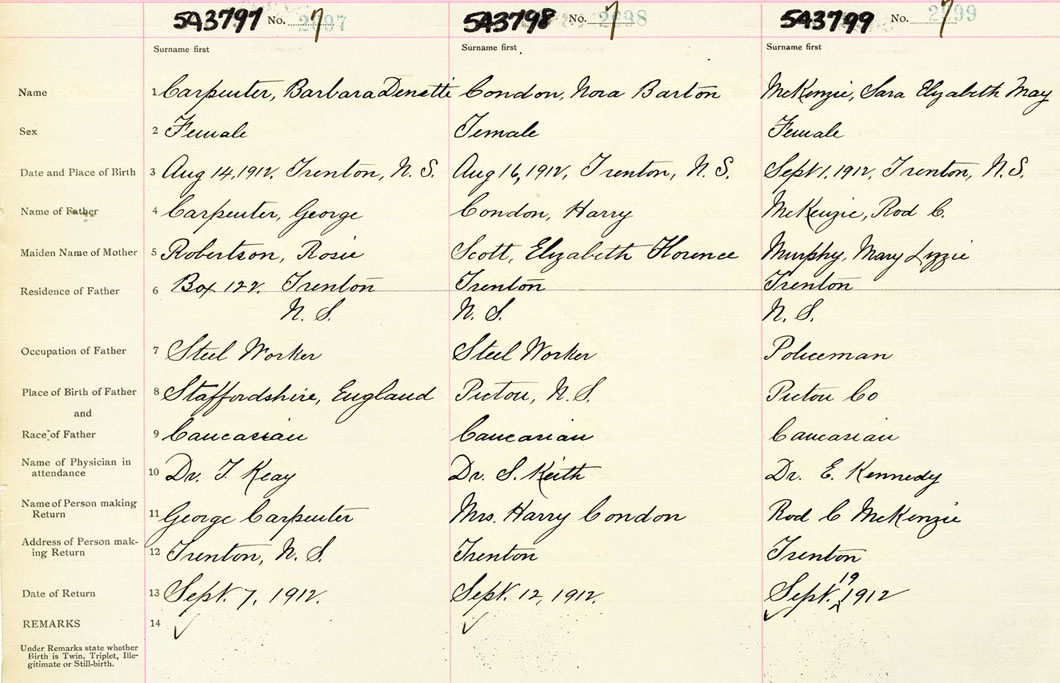 5A3797 No. 7 2897 5A3798 No. 7 2898 5A3799 No. 7 2899
Surname first Surname first Surname first
Name 1 Carpenter, Barbara Denetti Condon, Nora Barton McKenzie, Sara Elizabeth May
Sex 2 Female Female Female
Date and Place of Birth 3 Aug 14, 1912. Trenton, N.S. Aug 16, 1912, Trenton, N.S. Sept 1. 1912, Trenton, N.S.
Name of Father 4 Carpenter, George Condon, Harry McKenzie, Rod C.
Maiden Name of Mother 5 Robertson, Rosie Scott, Elizabeth Florence Murphy, Mary Lizzie
Residence of Father 6 Box 122. Trenton Trenton Trenton
N.S. N.S. N.S.
Occupation of Father 7 Steel Worker Steel Worker Policeman
Place of Birth of Father 8 Staffordshire, England Pictou, N.S. Pictou Co
and
Race of Father 9 Caucasian Caucasian Caucasian
Name of Physician in
attendance 10 Dr. J. Keay Dr. S. Keith Dr. E. Kennedy
Name of Person making
Return 11 George Carpenter Mrs. Harry Condon Rod C McKenzie
Address of Person mak-
ing Return 12 Trenton, N.S. Trenton Trenton
Date of Return 13 Sept. 7, 1912. Sept. 12, 1912. Sept. 19 1912
REMARKS 14
Under Remarks state whether
Birth is Twin, Triplet, Ille-
gitimate or Still-birth.